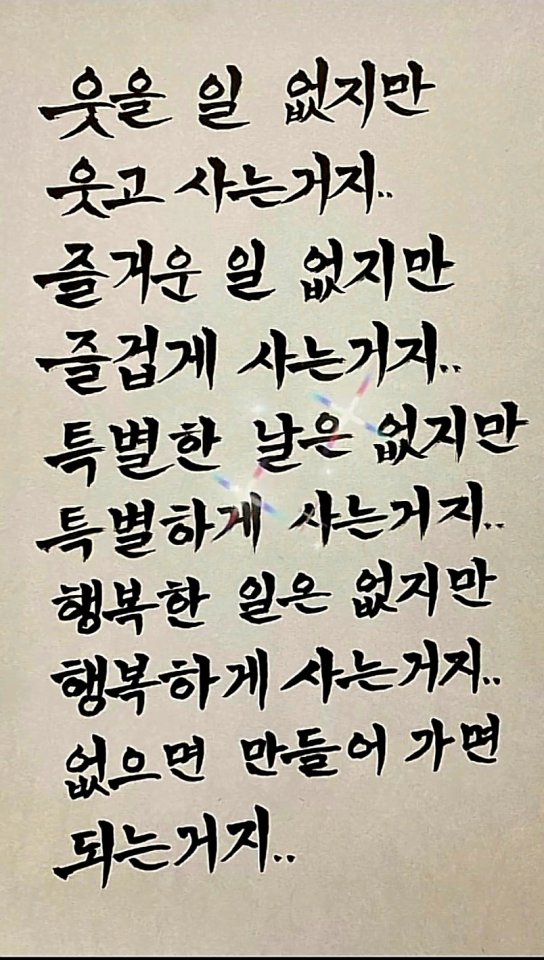 웃을 일 없지만
웃고 사는거지..
즐거운 일 없지만
즐겁게 사는거지..
특별한 날은 없지만
특별하게 사는거지..
행복한 일은 없지만
행복하게 사는거지..
없으면 만들어 가면
되는거지..